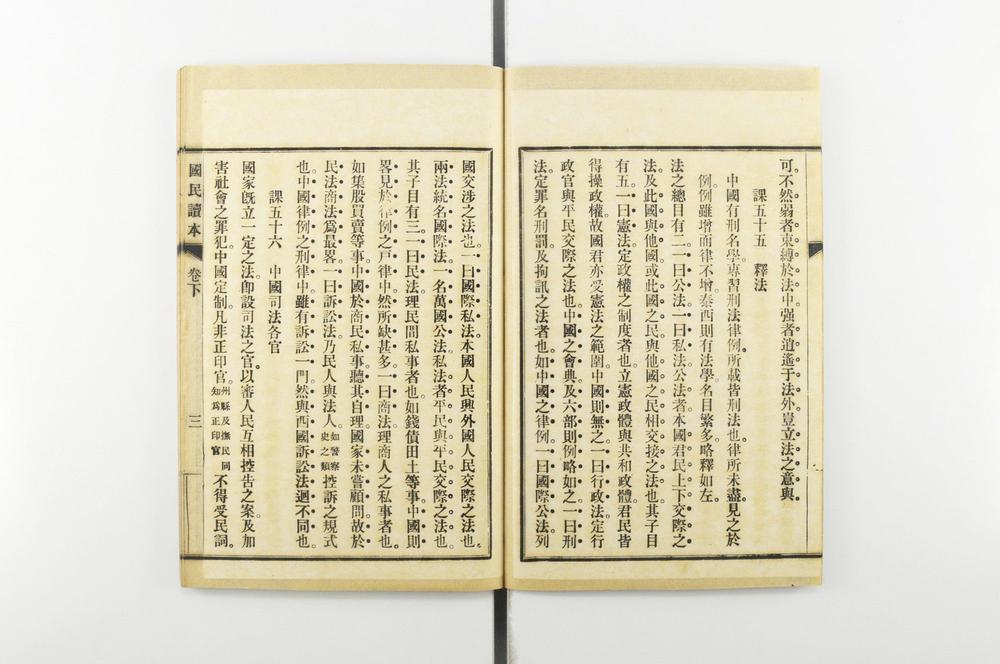 可。不然弱者束縛於法中。强者逍遙于法外。豈立法之意與。
課五十五　釋法
中國有刑名學。專習刑法律例。所載皆刑法也。律所未盡。見之於
例。例雖增而律不增。泰西則有法學。名目繁多。略釋如左。
法之總目有二。一曰公法。一曰私法。公法者。本國君民上下交際之
法。及此國與他國。或此國之民與他國之民相交接之法也。其子目
有五。一曰憲法。定政權之制度者也。立憲政體與共和政體。君民皆
得操政權。故國君亦受憲法之範圍。中國則無之。一曰行政法。定行
政官與平民交際之法也。中國之會典。及六部則例略如之。一曰刑
法。定罪名刑罰。及拘訊之法者也。如中國之律例。一曰國際公法。列
國交涉之法也。一曰國際私法。本國人民與外國人民交際之法也。
兩法統名國際法。一名萬國公法。私法者。平民與平民交際之法也。
其子目有三。一曰民法。理民間私事者也。如錢債田土等事。中國則
畧見於律例之戶律中。然所缺甚多。一曰商法。理商人之私事者也。
如集股買賣等事。中國於商民私事。聽其自理。國家未嘗顧問。故於
民法商法爲最畧。一曰訴訟法。乃民人與法人。如警察史之類控訴之規式
也。中國律例之刑律中。雖有訴訟一門。然與西國訴訟法迥不同也。
課五十六　中國司法各官
國家旣立一定之法。卽設司法之官。以審人民互相控告之案。及加
害社會之罪犯。中國定制。凡非正印官。州縣及撫民同知爲正印官不得受民詞。
國民讀本
卷下
三